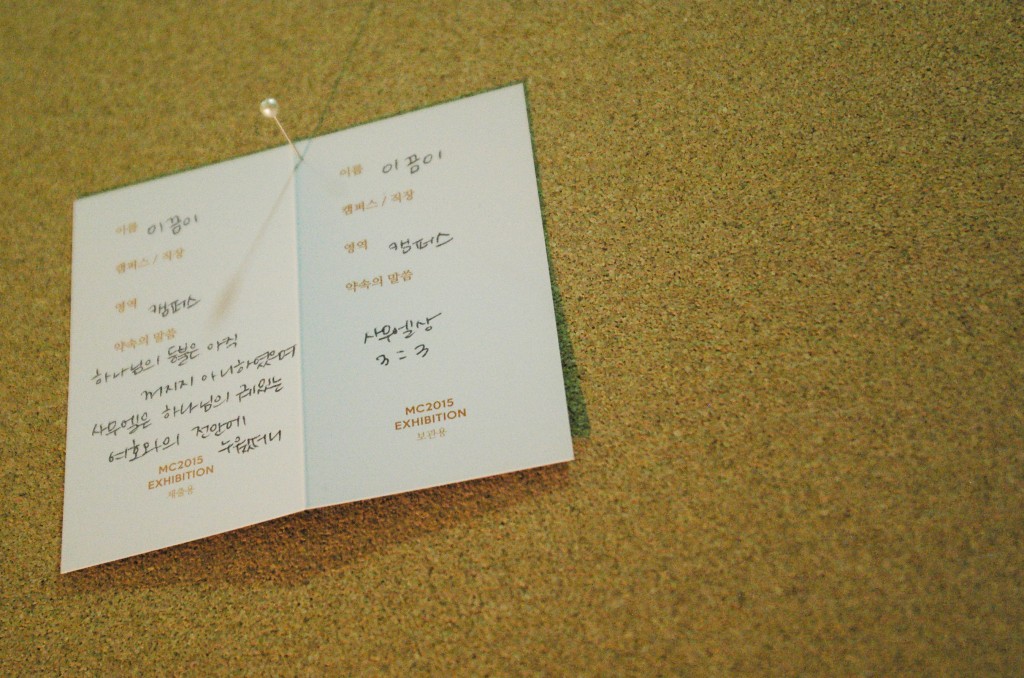 이름 이끔이
캠퍼스 / 직장
영역 캠퍼스
약속의 말씀
하나님의 등불은 아직
꺼지지 아니하였으며
사무엘은 하나님의 궤있는
여호와의 전안에
누웠더니
MC2015
EXHIBITION
제출용
이름 이끔이
캠퍼스 / 직장
영역 캠퍼스
약속의 말씀
사무엘상
3:3
MC2015
EXHIBITION
보관용